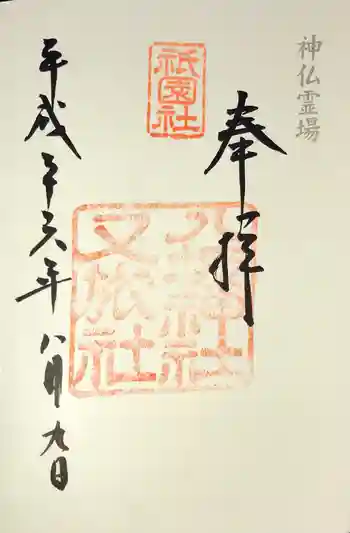 神仏霊場
奉拝
祇園社
八坂神社
又旅社
平成廿六年八月九日